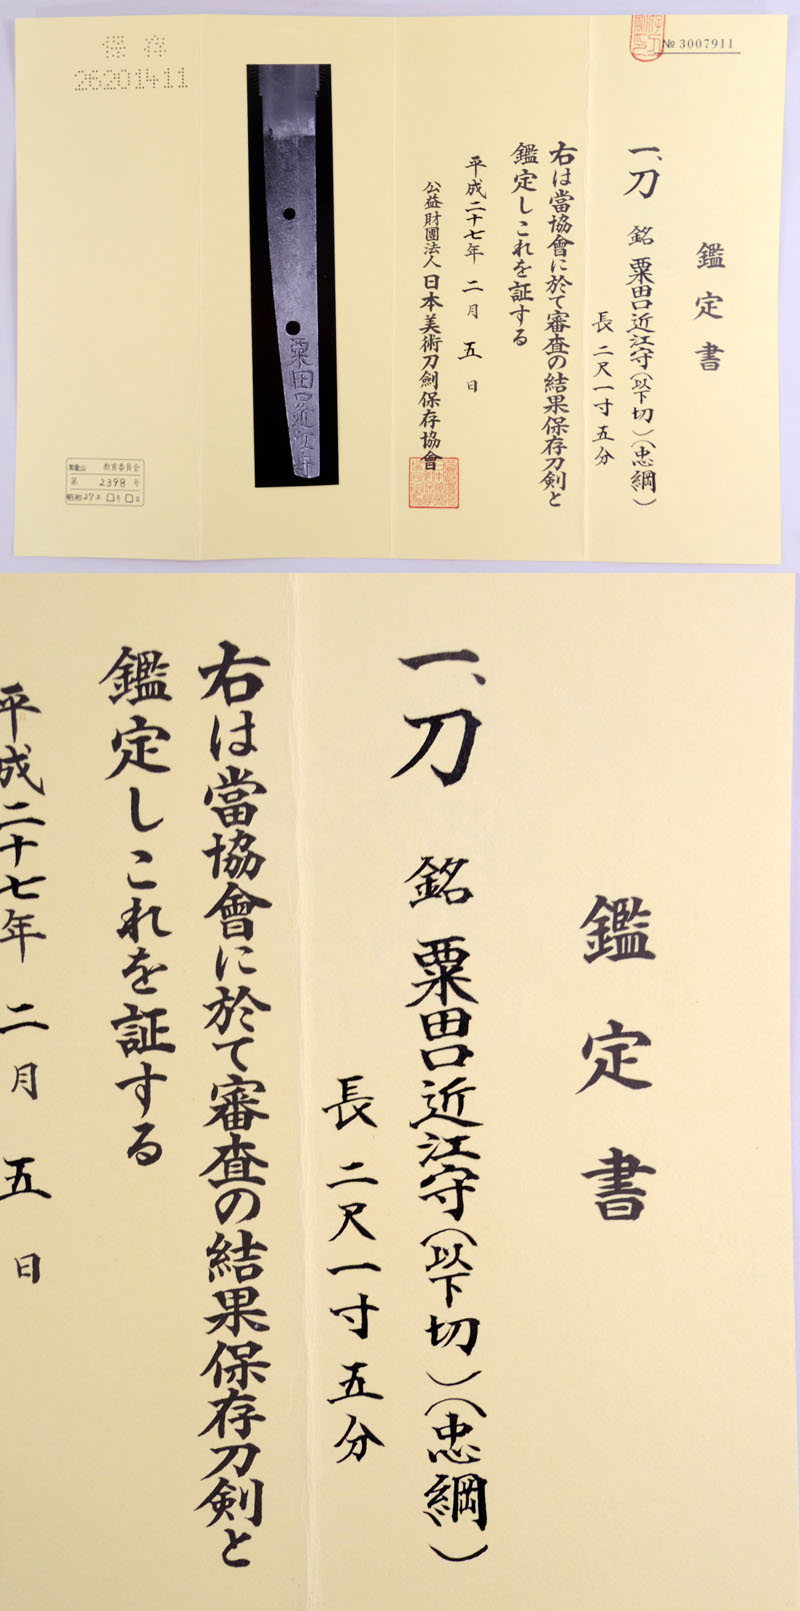 № 3007911
鑑定書
一、刀 銘 粟田口近江守（以下切）（忠綱）
長 二尺一寸五分
右は當協會に於て審査の結果保存刀剣と
鑑定しこれを証する
平成二十七年 二月 五日
公益財團法人 日本美術刀剣保存協會
粟田口近江守
保存
26201411
和歌山 教育委員会
第 2398 号
昭和27年 口月口日
鑑定書
一、刀 銘 粟田口近江守（以下切）（忠綱）
長 二尺一寸五分
右は當協會に於て審査の結果保存刀剣と
鑑定しこれを証する
平成二十七年 二月 五日